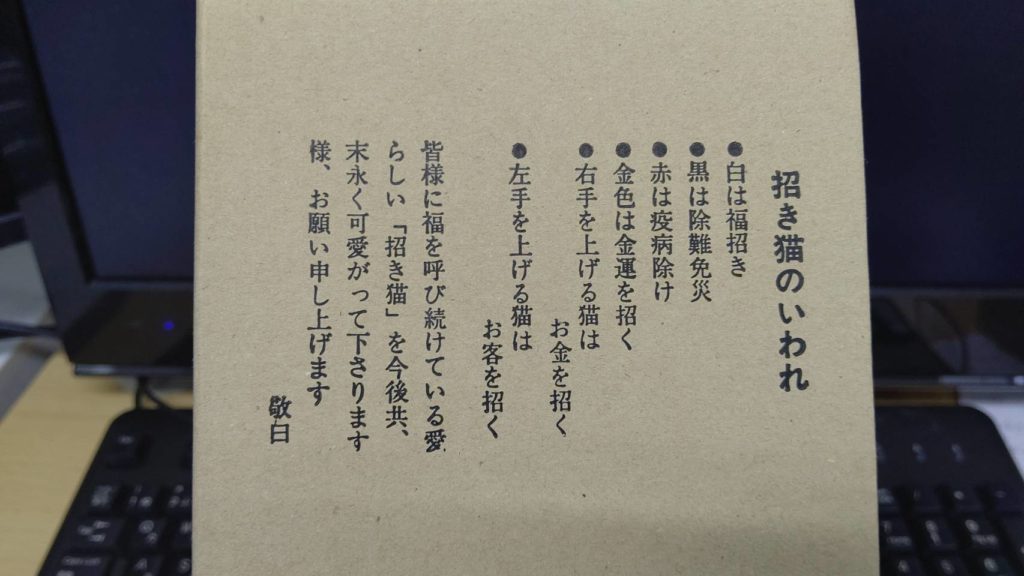 招き猫のいわれ
●白は福招き
●黒は除難免災
●赤は疫病除け
●金色は金運を招く
●右手を上げる猫は
お金を招く
●左手を上げる猫は
お客を招く
皆様に福を呼び続けている愛
らしい「招き猫」を今後共、
末永く可愛がって下さります
様、お願い申し上げます
敬白